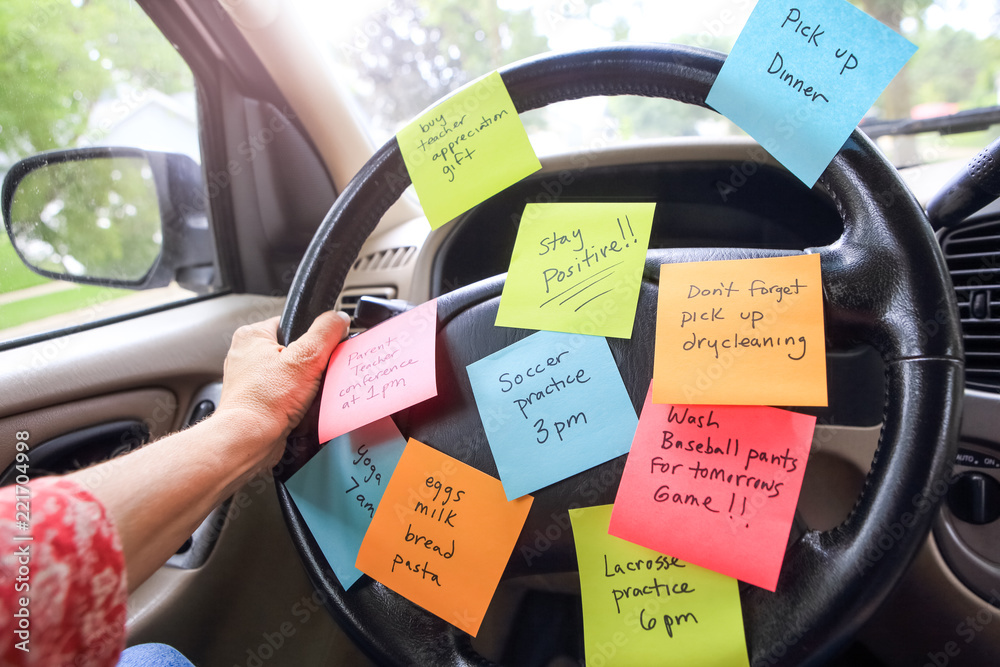 Pick up
Dinner
buy
teacher
appreciation
gift
Stay
Positive!!
Don't forget
pick up
drycleaning
Parent
Teacher
conference
at 1pm
Soccer
practice
3pm
Wash
Baseball pants
For tomorrows
Game!!
Yoga
7am
eggs
milk
bread
pasta
Lacrosse
practice
6pm
AUTO
Adobe Stock | #221704998